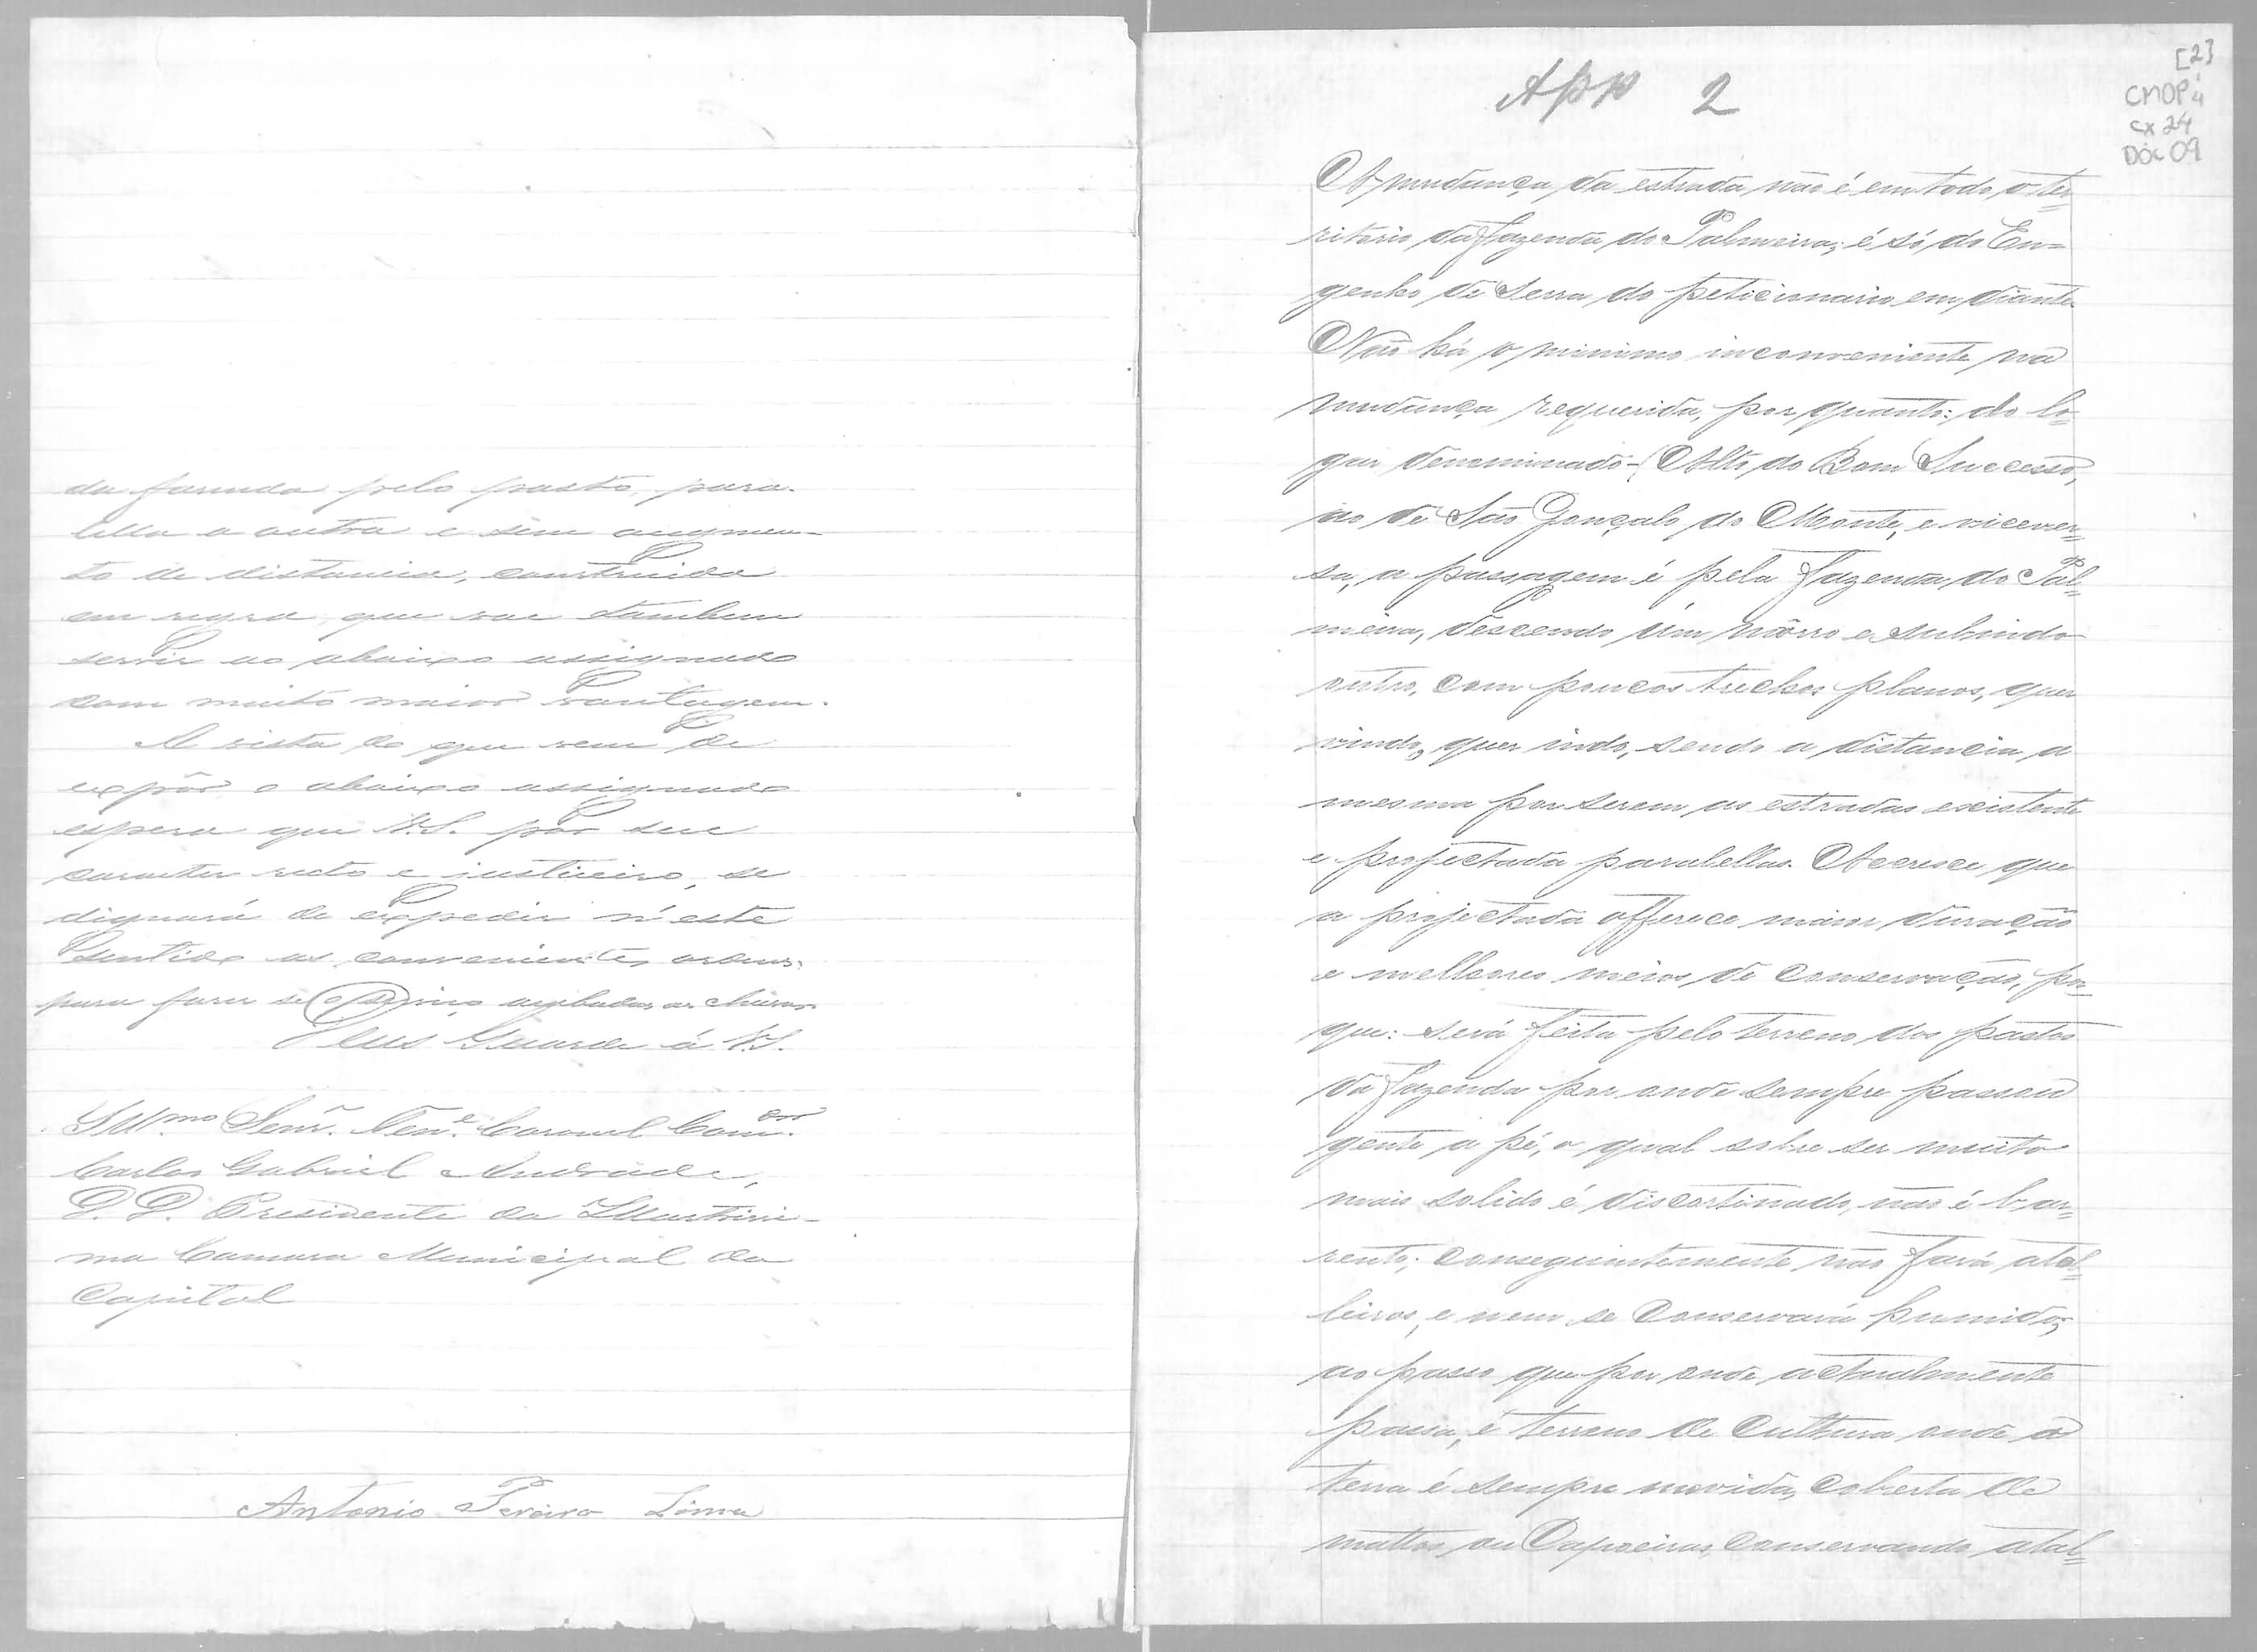 da fazenda pelo pasto, para-
lella a outra e sem augmen-
to de distancia, construida
em regra, que vae tambem
servir ao abaixo assignado
com muito maior vantagem.
A vista do que vem de
expôr o abaixo assignado
espera que V.S. por seu
caracter recto e justiceiro, se
dignará de expedir n'este
sentido as convenientes ordens.
para fazer se o serviço acabadas as chuvas.
Deus Guarde á V.S.
Illmo Senr. Tene. Coronel Comdor.
Carlos Gabriel Andrade,
D. D. Presidente da Illustrissi-
ma Camara Municipal da
Capital
Antonio Pereira Lima
App 2
[2]
CMOP
cx 24
Doc 09
A mudança da estrada não é em todo o ter=
ritorio da fazenda do Palmeira; é só do En=
genho de Serra do peticionario em diante.
Não há o minimo inconveniente na
mudança requerida, por quanto: do lo=
gar denominado - Alto do Bom Successo,
ao de São Gonçalo do Monte, e vicever=
sa, a passagem é pela fazenda do Pal=
meira, descendo um môrro e subindo
outro, com poucos trechos planos, quer
vindo, quer indo, sendo a distancia a
mesma por serem as estradas existente
e projectada parallellas. Accresce que
a projectada offerece maior duração
e melhores meios de conservação, por=
que: será feita pelo terreno dos pastos
da fazenda por onde sempre passou
gente a pé, o qual sobre ser muito
mais solido é discortinado, não é bar=
rento; conseguintemente não fará atol=
leiros, e nem se conservará humido;
ao passo que por onde actualmente
passa, é terreno de cultura onde a
terra é sempre movida, coberta de
mattos ou capoeiras, conservando atol=